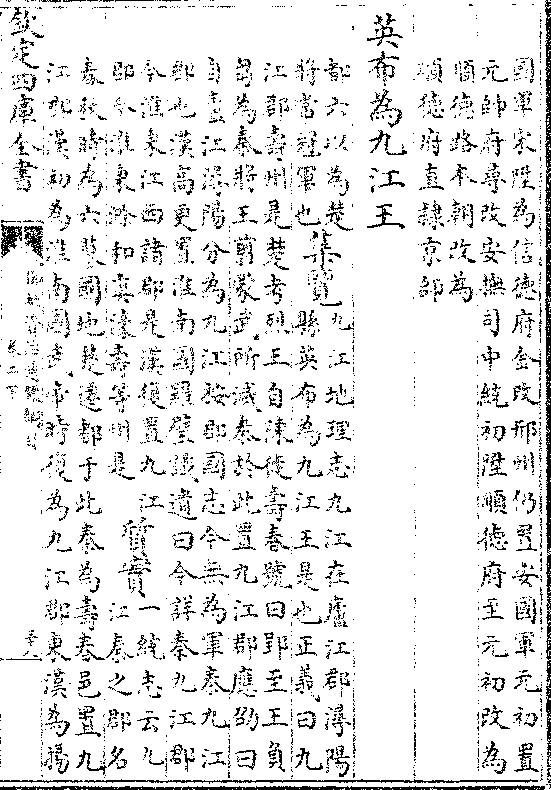 國軍宋陞為信德府金改邢州仍置安國軍元初置
元帥府尋改安撫司中統初陞順德府至元初改為
順德路本朝改為
順德府直隸京師
英布為九江王
都六以為楚
將當冠軍也
集覽
九江地理志九江在廬江郡潯陽
縣英布為九江王是也正義曰九
江郡壽州是楚考烈王自陳徙壽春號曰郢至王負
芻為秦將王翦蒙武所滅秦於此置九江郡應劭曰
自廬江潯陽分為九江按郡國志今無為軍秦九江
郡也漢高更置淮南國羅璧識遺曰今詳秦九江郡
今淮東江西諸郡是漢復置九江
郡今淮東滁和真濠壽等州是
質實
一統志云九
江秦之郡名
春秋時為六蓼國地楚遷都于此秦為壽春邑置九
江郡漢初為淮南國武帝時復為九江郡東漢為揚
欽定四庫全書